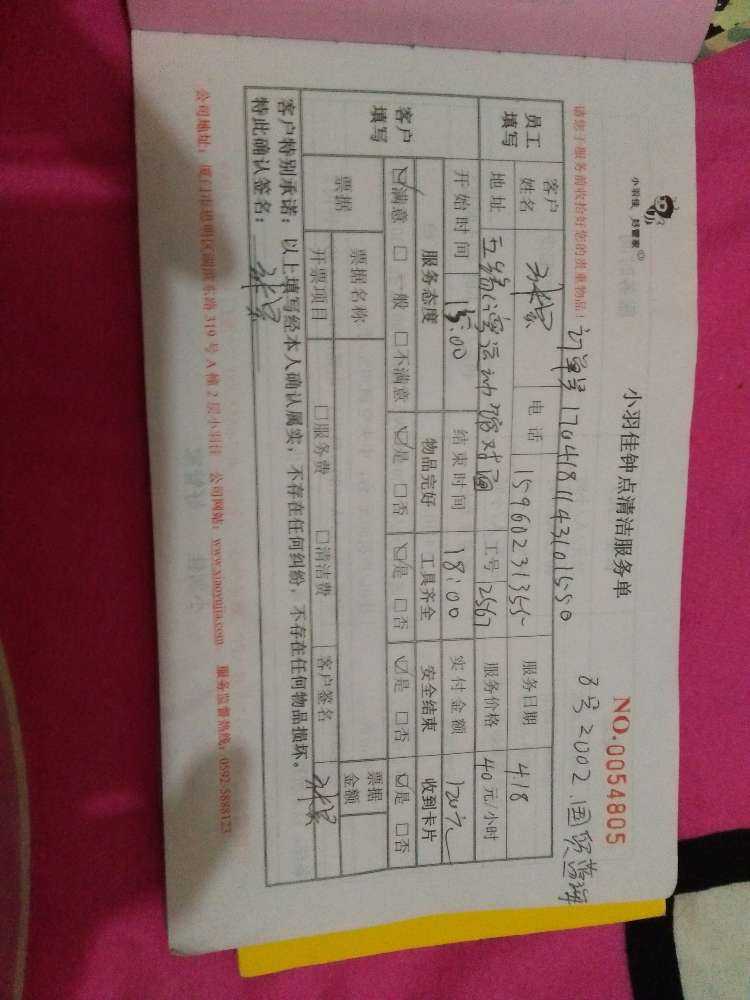 小羽佳 好管家
小羽佳钟点清洁服务单
NO.0054805
请您于服务前收拾好您的贵重物品！
订单号1704181143101550
8号2002.国贸蓝海
员工填写
客户姓名 电话 15960231355 服务日期 418
地址 五缘湾运动馆对面 工号 2567 服务价格 40元/小时
开始时间 15:00 结束时间 18:00 实付金额 120元
客户填写
服务态度 物品完好 工具齐全 安全结束 收到卡片
☑满意 □一般 □不满意 ☑是 □否 ☑是 □否 ☑是 □否 ☑是 □否
票据 票据名称 票据金额
开票项目 □服务费 □清洁费 客户签名
客户特别承诺：以上填写经本人确认属实，不存在任何纠纷，不存在任何物品损坏。
特此确认签名：
公司地址：厦门市思明区湖滨东路319号A幢2层小羽佳 公司网站：www.xiaoyujia.com 服务监督热线：0592-5888123